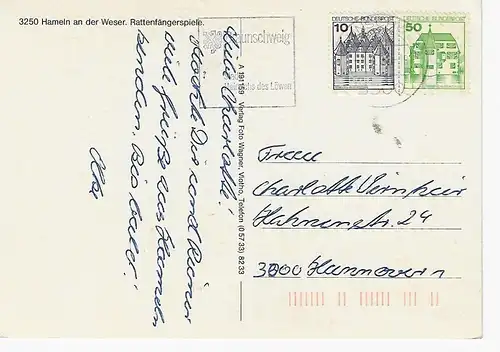 3250 Hameln an der Weser. Rattenfängerspiele.
unschweig
des Löwen
10 DEUTSCHE BUNDESPOST
50 DEUTSCHE BUNDESPOST
Liebe Charlotte!
Möchte Dir und
viele Grüße aus Hameln
senden. Bis bald!
A 191159 Verlag Foto Wagner, Vlotho, Telefon (0 57 33) 82 33
Frau
Charlotte
24
3000 Hannover 1